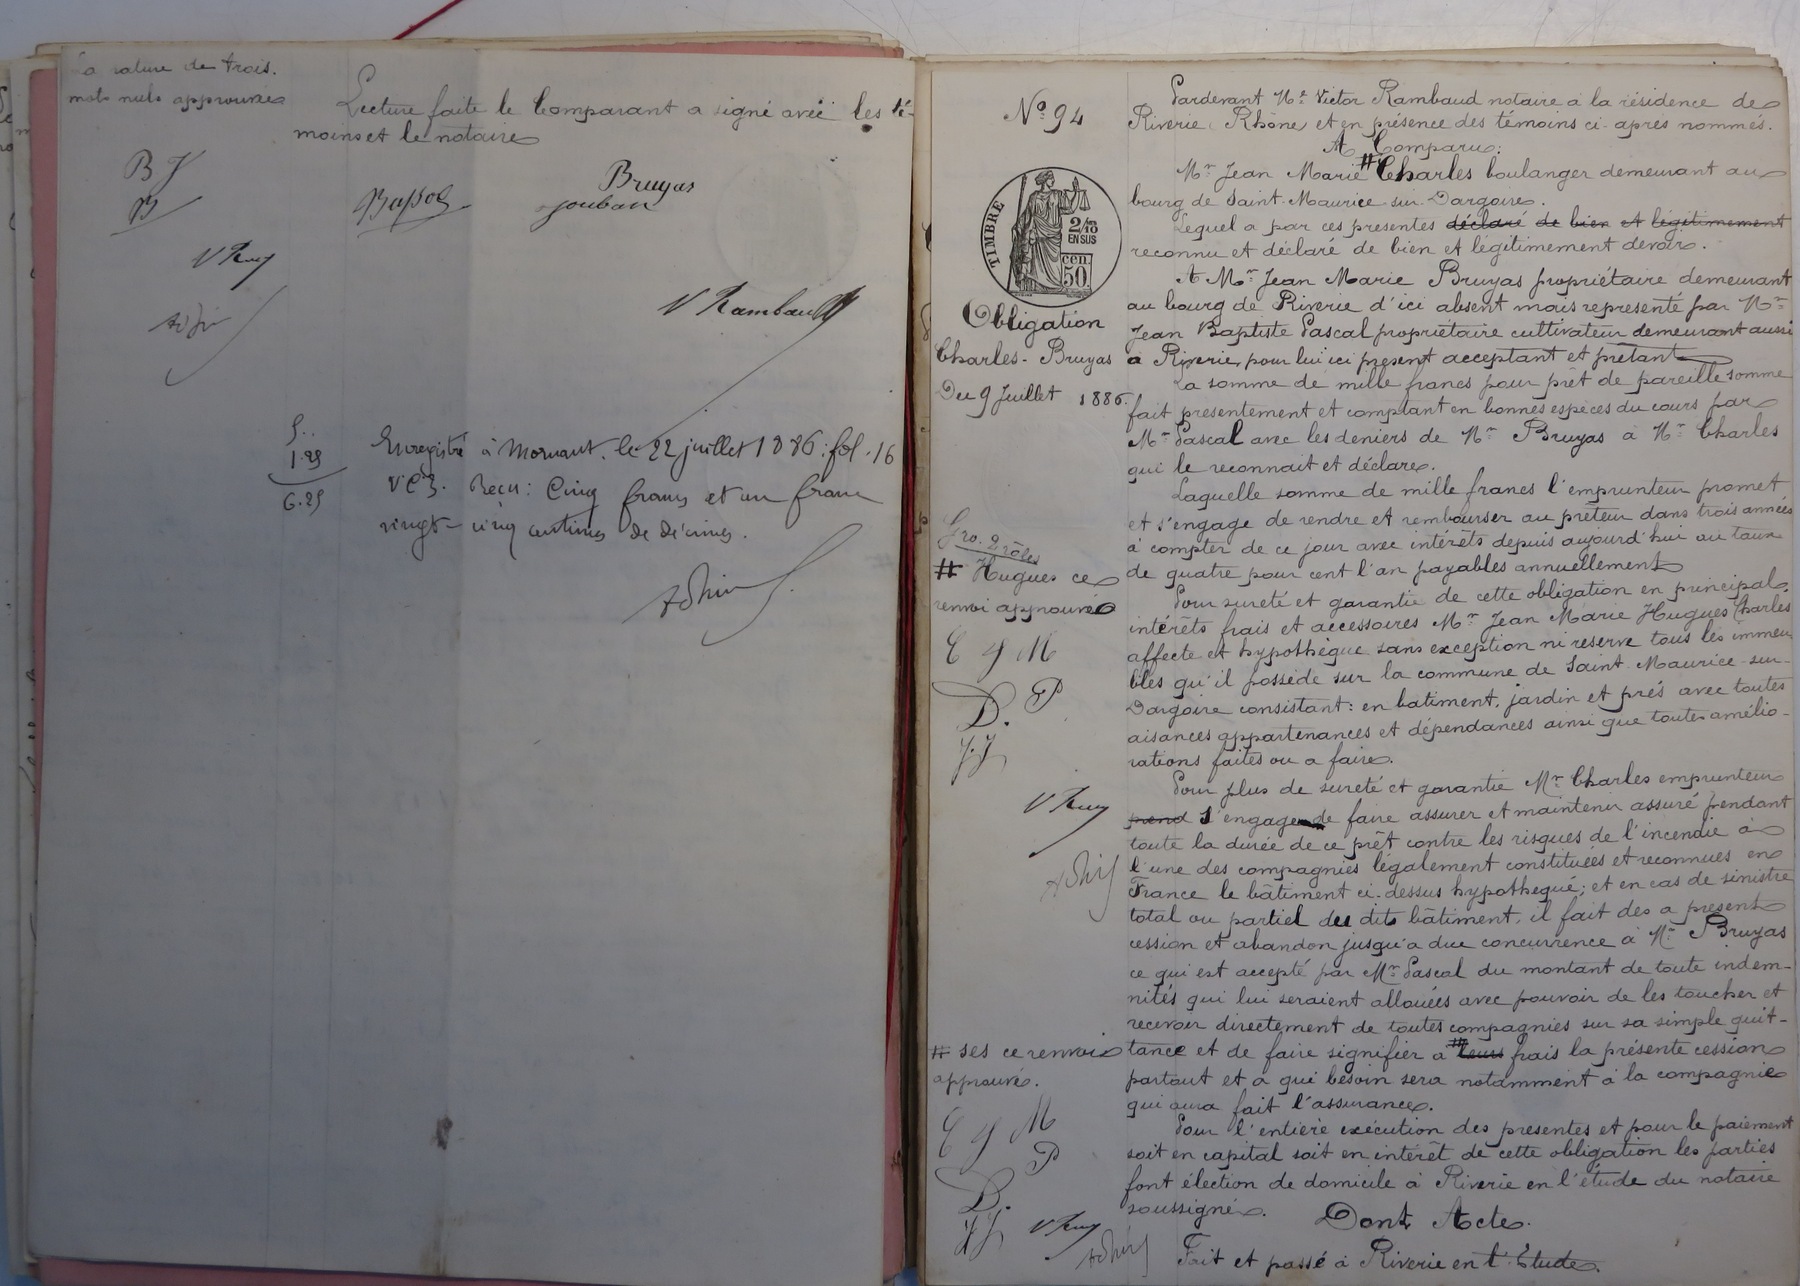 La rature de trois.
mots nuls approuvée
Lecture faite le Comparant a signé avec les té-
moins et le notaire
B J
B
Bruyas
Jouban
V Ramb
V Rambaud
5..
1.25
6.25
Enregistré à Mornant, le 22 juillet 1886: fol. 16
V. C 3. Recu: Cinq francs et un franc
vingt-cinq centimes de décimes.
No. 94
TIMBRE
2/10
EN SUS
50 cen.
Obligation
Charles - Bruyas
Du 9 Juillet 1886.
Pardevant Me. Victor Rambaud notaire à la résidence de
Riverie (Rhône) et en présence des témoins ci-après nommés.
A Comparu:
Mr. Jean Marie # Charles boulanger demeurant au
bourg de Saint-Maurice-sur-Dargoire.
Lequel a par ces presentes déclaré de bien et légitimement
reconnu et déclaré de bien et légitimement devoir.
A Mr. Jean Marie Bruyas propriétaire demeurant
au bourg de Riverie d'ici absent mais representé par Mr.
Jean Baptiste Pascal propriétaire cultivateur demeurant aussi
à Riverie, pour lui ici present acceptant et prêtant
La somme de mille francs pour prêt de pareille somme
fait presentement et comptant en bonnes espèces du cours par
Mr. Pascal avec les deniers de Mr. Bruyas à Mr. Charles
qui le reconnait et déclare.
Laquelle somme de mille francs l'emprunteur promet
et s'engage de rendre et rembourser au prêteur dans trois années
à compter de ce jour avec intérêts depuis aujourd'hui au taux
de quatre pour cent l'an payables annuellement
Pour sureté et garantie de cette obligation en principal,
intérêts frais et accessoires Mr. Jean Marie Hugues Charles
affecte et hypothèque sans exception ni reserve tous les immeu
bles qu'il possède sur la commune de Saint-Maurice-sur-
Dargoire consistant: en batiment, jardin et prés avec toutes
aisances appartenances et dépendances ainsi que toutes amélio-
rations faites ou a faire.
Pour plus de sureté et garantie Mr. Charles emprunteur
prend s'engage de faire assurer et maintenir assuré pendant
toute la durée de ce prêt contre les risques de l'incendie à
l'une des compagnies légalement constituées et reconnues en
France le bâtiment ci-dessus hypothequé; et en cas de sinistre
total ou partiel des dits bâtiment, il fait des a present
cession et abandon jusqu'a due concurrence à Mr. Bruyas
ce qui est accepté par Mr. Pascal du montant de toute indem-
nités qui lui seraient allouées avec pouvoir de les toucher et
recevoir directement de toutes compagnies sur sa simple quit-
tance et de faire signifier a # leurs frais la présente cession
partout et a qui besoin sera notamment à la compagnie
qui aura fait l'assurance.
Pour l'entière exécution des presentes et pour le paiement
soit en capital soit en intérêt de cette obligation les parties
font élection de domicile à Riverie en l'étude du notaire
soussigné.
Dont Acte.
Fait et passé à Riverie en l'Etude.
Gro. 2 rôles
# Hugues ce
renvoi approuvé
C J M
D. P
J. J
# ses ce renvoi
approuvé.
C J M
P
D.
J J